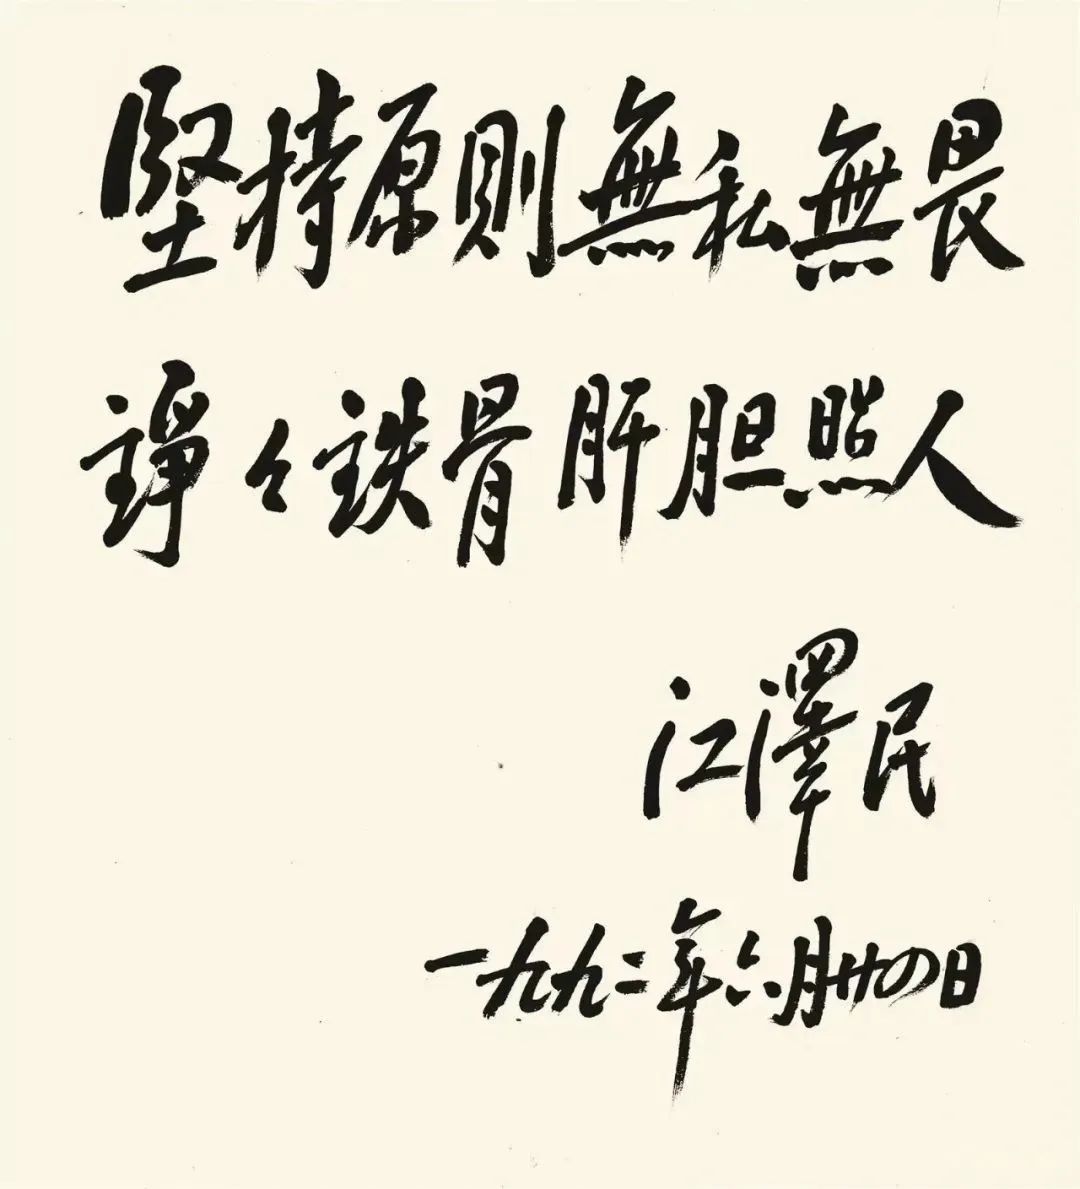 堅持原則無私無畏
錚々鉄骨肝胆照人
江澤民
一九九二年六月廿四日